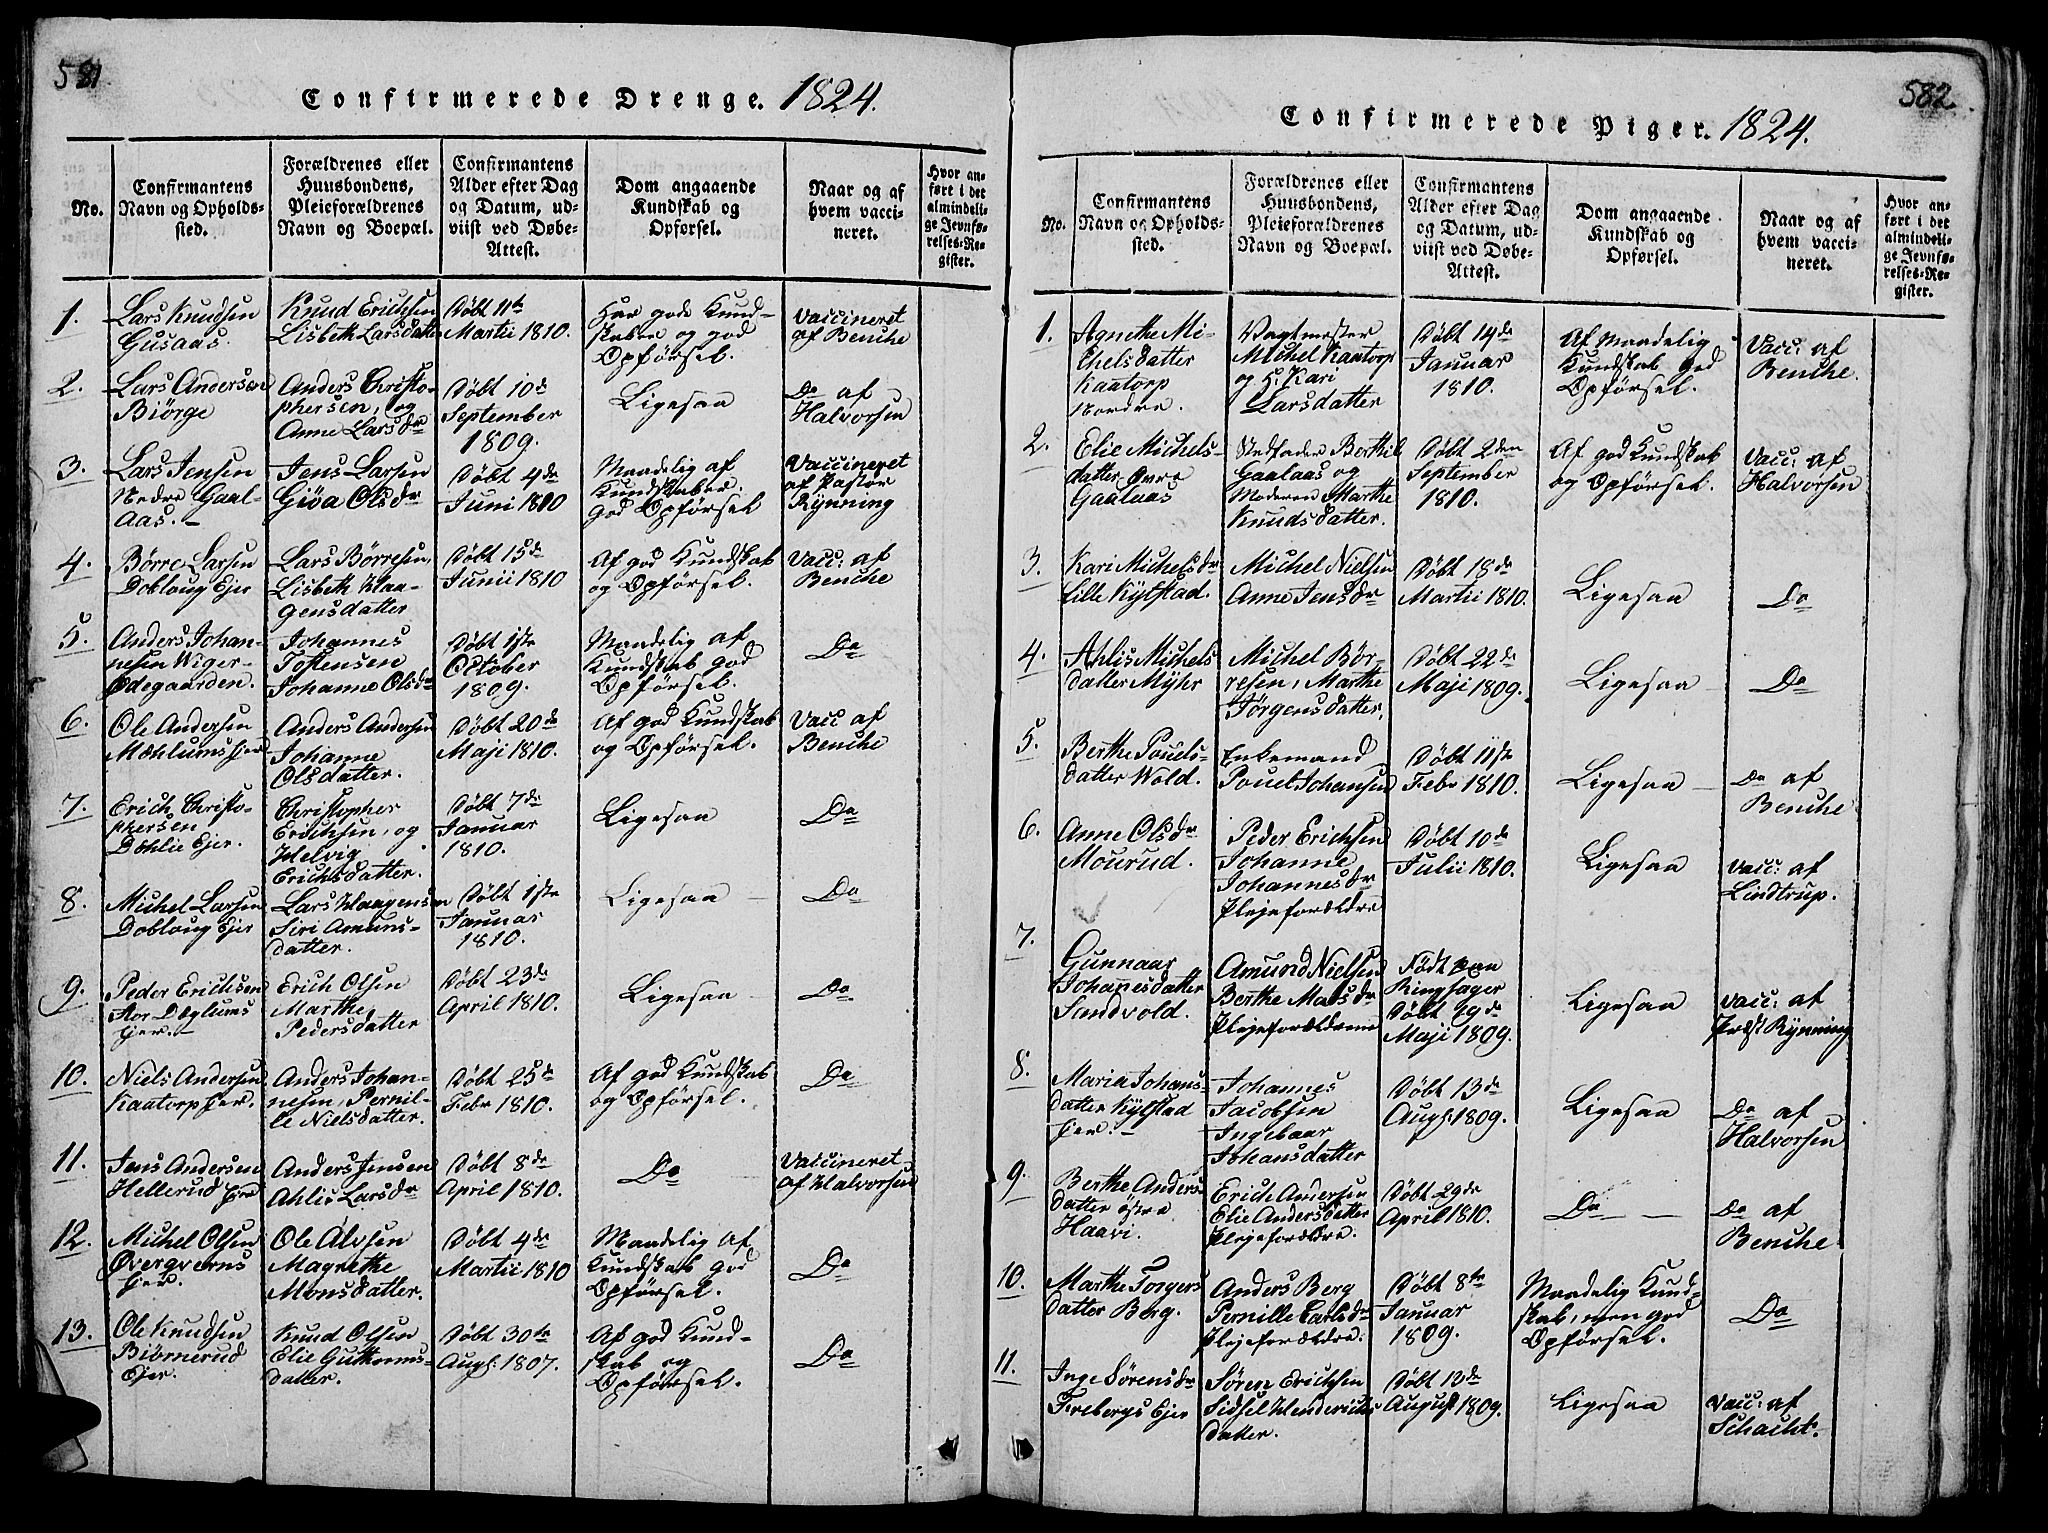 581.
Confirmerede Drenge. 1824.
No.
Confirmantens
Navn og Opholds-
sted.
Forældrenes eller
Huusbondens,
Pleieforældrenes
Navn og Boepæl.
Confirmantens
Alder efter Dag
og Datum, ud-
viist ved Døbe-
Attest.
Dom angaaende
Kundskab og
Opførsel.
Naar og af
hvem vacci-
neret.
Hvor an-
ført i det
almindeli-
ge Jevnfø-
relses-Re-
gister.
1.
Lars Knudsen
Gusaas.
Knud Erichsen
Lisbeth Larsdatter
Døbt 11te
Martii 1810.
Har gode Kund-
skaber og god
Opførsel.
Vaccineret
af Benche
2.
Lars Andersen
Biørge
Anders Christo-
phersen, og
Anne Larsdr
Døbt 10de
September
1809.
Ligesaa
Do af
Halvorsen
3.
Lars Jensen
Nedre Gaal-
aas.
Jens Larsen
Giøa Olsdr
Døbt 4de
Juni 1810
Maadelig af
Kundskaber.
God Opførsel
Vaccineret
af Pastor
Rynning
4.
Børre Larsen
Dobloug Ejer
Lars Børresen,
Lisbeth Haa-
gensdatter
Døbt 15de
Junii 1810
Af god Kundskab
og Opførsel.
Vacc: af
Benche
5.
Anders Johan-
nesen Wiger-
Ødegaarden.
Johannes
Tostensen
Johanne Olsdr
Døbt 1ste
October
1809.
Maadelig af
Kundskab god
Opførsel.
Do
6.
Ole Andersen
Mæhlums Ejer
Anders Andersen
Johanne
Olsdatter.
Døbt 20de
Maji 1810.
Af god Kundskab
og Opførsel.
Vacc af
Benche
7.
Erich Christo-
phersen
Dæhlie Ejer.
Christopher
Erichsen, og
Helvig
Erichsdatter.
Døbt 7de
Januar
1810.
Ligesaa
Do
8.
Michel Larsen
Dobloug Ejer
Lars Haagensen
Siri Amuns-
datter.
Døbt 1ste
Januar
1810.
Ligesaa
Do
9.
Peder Erichsen
Stor Dæglums
Ejer.
Erich Olsen
Marthe
Pedersdatter
Døbt 23de
April 1810.
Ligesaa
Do
10.
Niels Andersen
Kaatorp Ejer.
Anders Johan-
nesen, Pernil-
le Nielsdatter.
Døbt 25de
Febr 1810.
Af god Kundskab
og Opførsel.
Do
11.
Jens Andersen
Hellerud Ejer
Anders Jensen
Ahlis Larsdr
Døbt 8de
April 1810.
Do
Vaccineret
af Halvorsen
12.
Michel Olsen
Overgverns
Ejer.
Ole Alvsen
Magrethe
Monsdatter.
Døbt 4de
Martii 1810
Maadelig af
Kundskab god
Opførsel.
Do
13.
Ole Knudsen
Biørnerud
Ejer.
Knud Olsen
Elie Guttorms-
datter.
Døbt 30te
Augs: 1807.
Af god Kund-
skab og
Opførsel.
Do
582.
Confirmerede Piger. 1824.
No.
Confirmantens
Navn og Opholds-
sted.
Forældrenes eller
Huusbondens,
Pleieforældrenes
Navn og Boepæl.
Confirmantens
Alder efter Dag
og Datum, ud-
viist ved Døbe-
Attest.
Dom angaaende
Kundskab og
Opførsel.
Naar og af
hvem vacci-
neret.
Hvor an-
ført i det
almindeli-
ge Jevnfø-
relses-Re-
gister.
1.
Agnethe Mi-
chelsdatter
Kaatorp
Nordre.
Vagtmester
Michel Kaatorp
og H. Kari
Larsdatter
Døbt 14de
Januar
1810.
Af Maadelig
Kundskab god
Opførsel.
Vacc: af
Benche.
2.
Elie Michels-
datter Øvre
Gaalaas
Stedfader Berthil
Gaalaas og
Moderen Marthe
Knudsdatter.
Døbt 2den
September
1810.
Af god Kundskab
og Opførsel.
Vacc: af
Halvorsen
3.
Kari Michelsdr
Lille Kylstad.
Michel Nielsen
Anne Jensdr
Døbt 18de
Martii 1810.
Ligesaa
Do
4.
Ahlis Michels
datter Myhr
Michel Bør-
resen, Marthe
Jørgensdatter.
Døbt 22de
Maji 1809.
Ligesaa
Do
5.
Berthe Pouels-
datter Wold.
Enkemand
Pouel Johansen
Døbt 11ste
Febr 1810.
Ligesaa
Do af
Benche
6.
Anne Olsdr
Mourud.
Peder Erichsen
Johanne
Johannesdr
Plejeforældre
Døbt 10de
Julii 1810.
Ligesaa
Vacc: af
Lindtrup.
7.
Gunnaar
Johanesdatter
Sandvold.
Amund Nielsen
Berthe Madsdr
Plejeforældrene
Født paa
Ringsager
Døbt 29de
Maji 1809.
Ligesaa
Vacc: af
Præst Rynning
8.
Maria Johans-
datter Kylstad
Ejer.
Johannes
Jacobsen
Ingebaar
Johansdatter
Døbt 13de
Augs: 1809.
Ligesaa
Do af
Halvorsen
9.
Berthe Anders
datter østre
Haavi.
Erich Andersen
Elie Andersdatter
Plejeforældre.
Døbt 29de
April 1810.
Do
Do af
Benche
10.
Marthe Torgers
datter Berg.
Anders Berg
Pernille Carlsdr
Plejeforældre.
Døbt 8de
Januar
1809.
Maadelig Kund-
skab, men god
Opførsel.
Do
11.
Inge Sørensdr
Frebergs Ejer
Søren Erichsen
Sidsel Henderichs
datter.
Døbt 13de
August 1809.
Ligesaa
Vacc: af
Schacht.